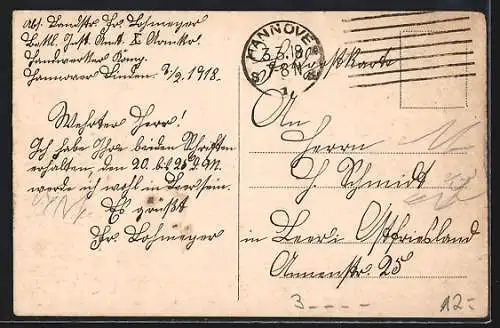 Abs. Landstr. Fr. Lohmeyer
Bekl. Inst. Amt. X Armeeko.
Handwerker Komp.
Hannover Linden 3/2. 1918.
Werter Herr!
Ich habe Ihre beiden Schriften
erhalten, den 20. bis 25. d. M.
werde ich wohl in Leer sein.
Es grüßt
Fr. Lohmeyer
HANNOVER
3.3.18
7-8 N
1
Postkarte
An
Herrn
H. Schmidt
in Leer i. Ostfriesland
Annenstr. 25
3 - - - -
12.-